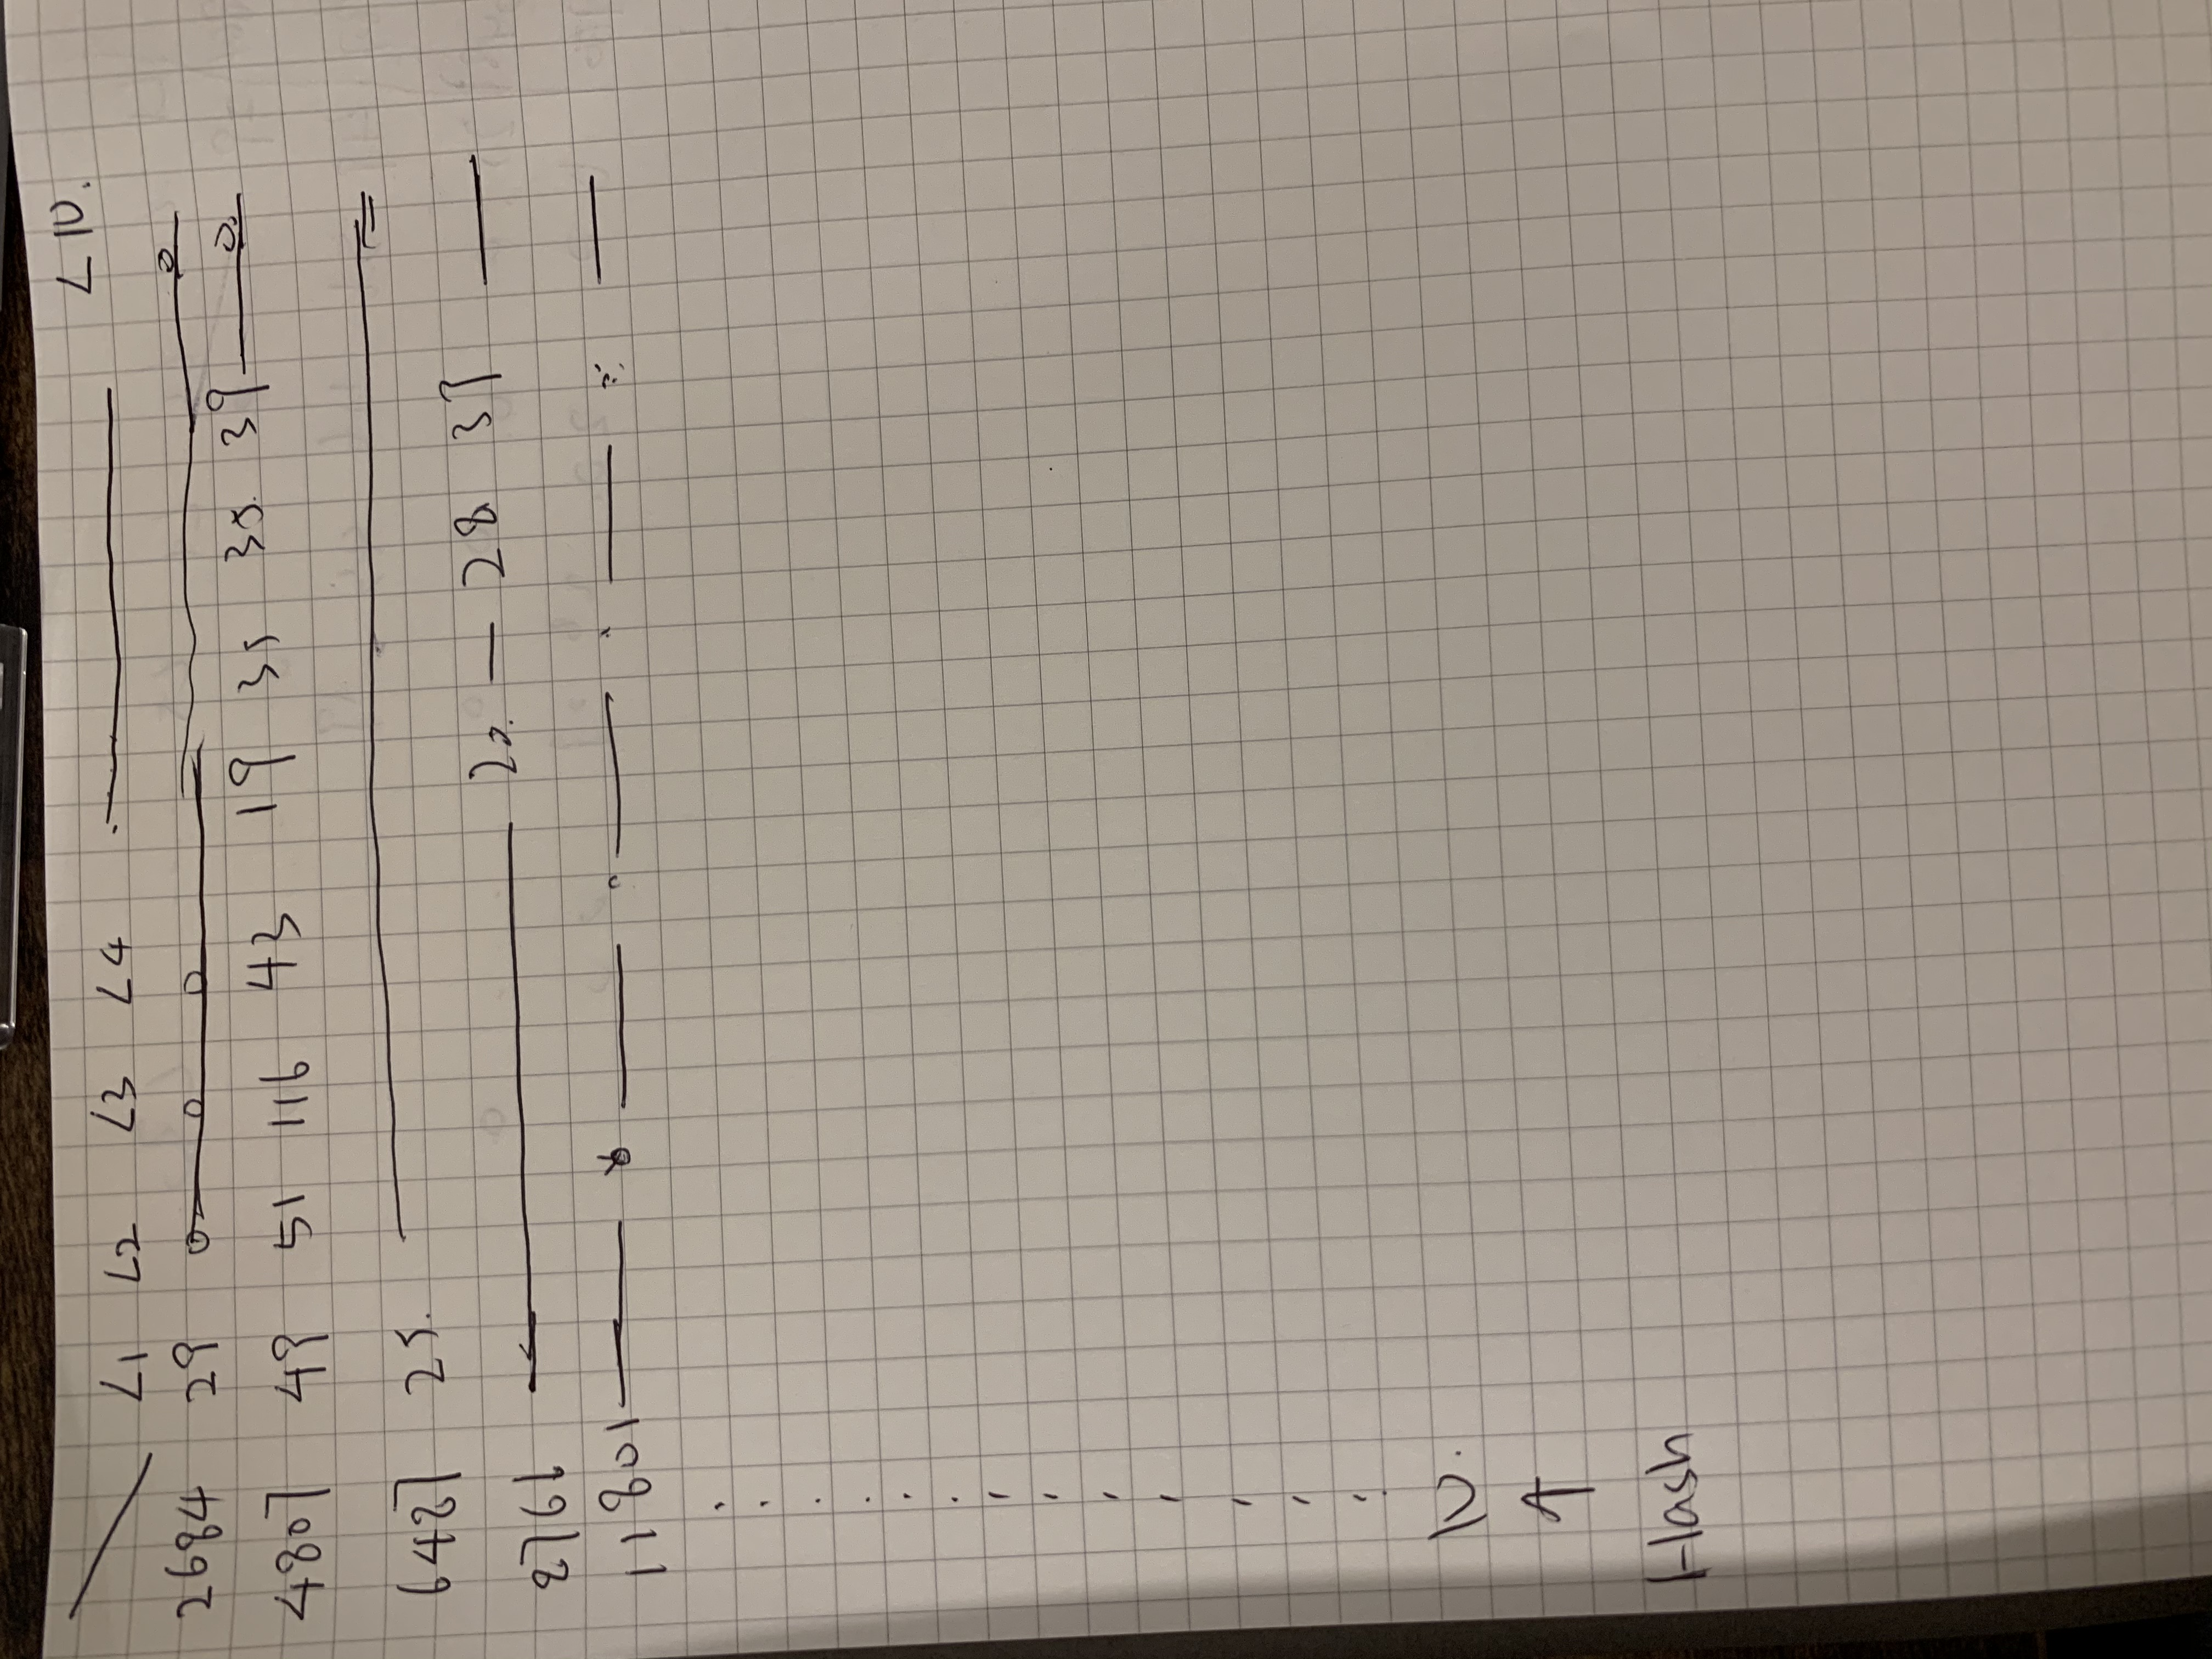 L1 L2 L3 L4 — L N.
2684 29 0 0 0 — 0
4807 49 51 116 43 19 35 35. 39 — 0.
6487 25. —
8761 — 20. — 28 37 —
11801 — — — — —
N.
↑
Hash